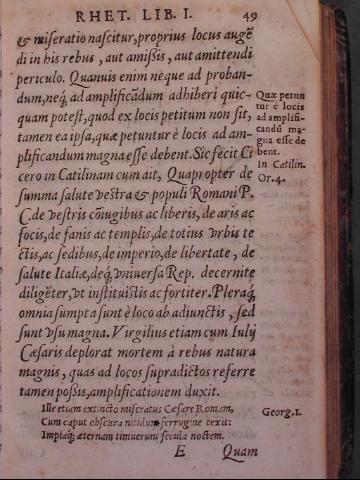 RHET. LIB. I. 49
& miseratio nascitur, proprius locus augē
di in his rebus, aut amißis, aut amittendi
periculo. Quanuis enim neque ad proban-
dum, neq́; ad amplificādum adhiberi quic-
quam potest, quod ex locis petitum non sit,
tamen ea ipsa, quæ petuntur è locis ad am-
plificandum magna esse debent. Sic fecit Ci
cero in Catilinam cum ait, Quapropter de
summa salute vestra & populi Romani P.
C. de vestris cōiugibus ac liberis, de aris ac
focis, de fanis ac templis, de totius vrbis te
ctis, ac sedibus, de imperio, de libertate, de
salute Italiæ, deq́; vniuersa Rep. decernite
diligēter, vt instituistis ac fortiter. Pleraq́;
omnia sumpta sunt è loco ab adiunctis, sed
sunt vsu magna. Virgilius etiam cum Iulij
Cæsaris deplorat mortem à rebus natura
magnis, quas ad locos supradictos referre
tamen poßis, amplificationem duxit.
Ille etiam extincto miseratus Cæsare Romam,
Cum caput obscura nitidum ferrugine texit:
Impiaq́; æternam timuerunt secula noctem.
E Quam
Quæ petun
tur è locis
ad amplifi-
candū ma-
gna esse de
bent.
In Catilin.
Or. 4.
Georg. 1.